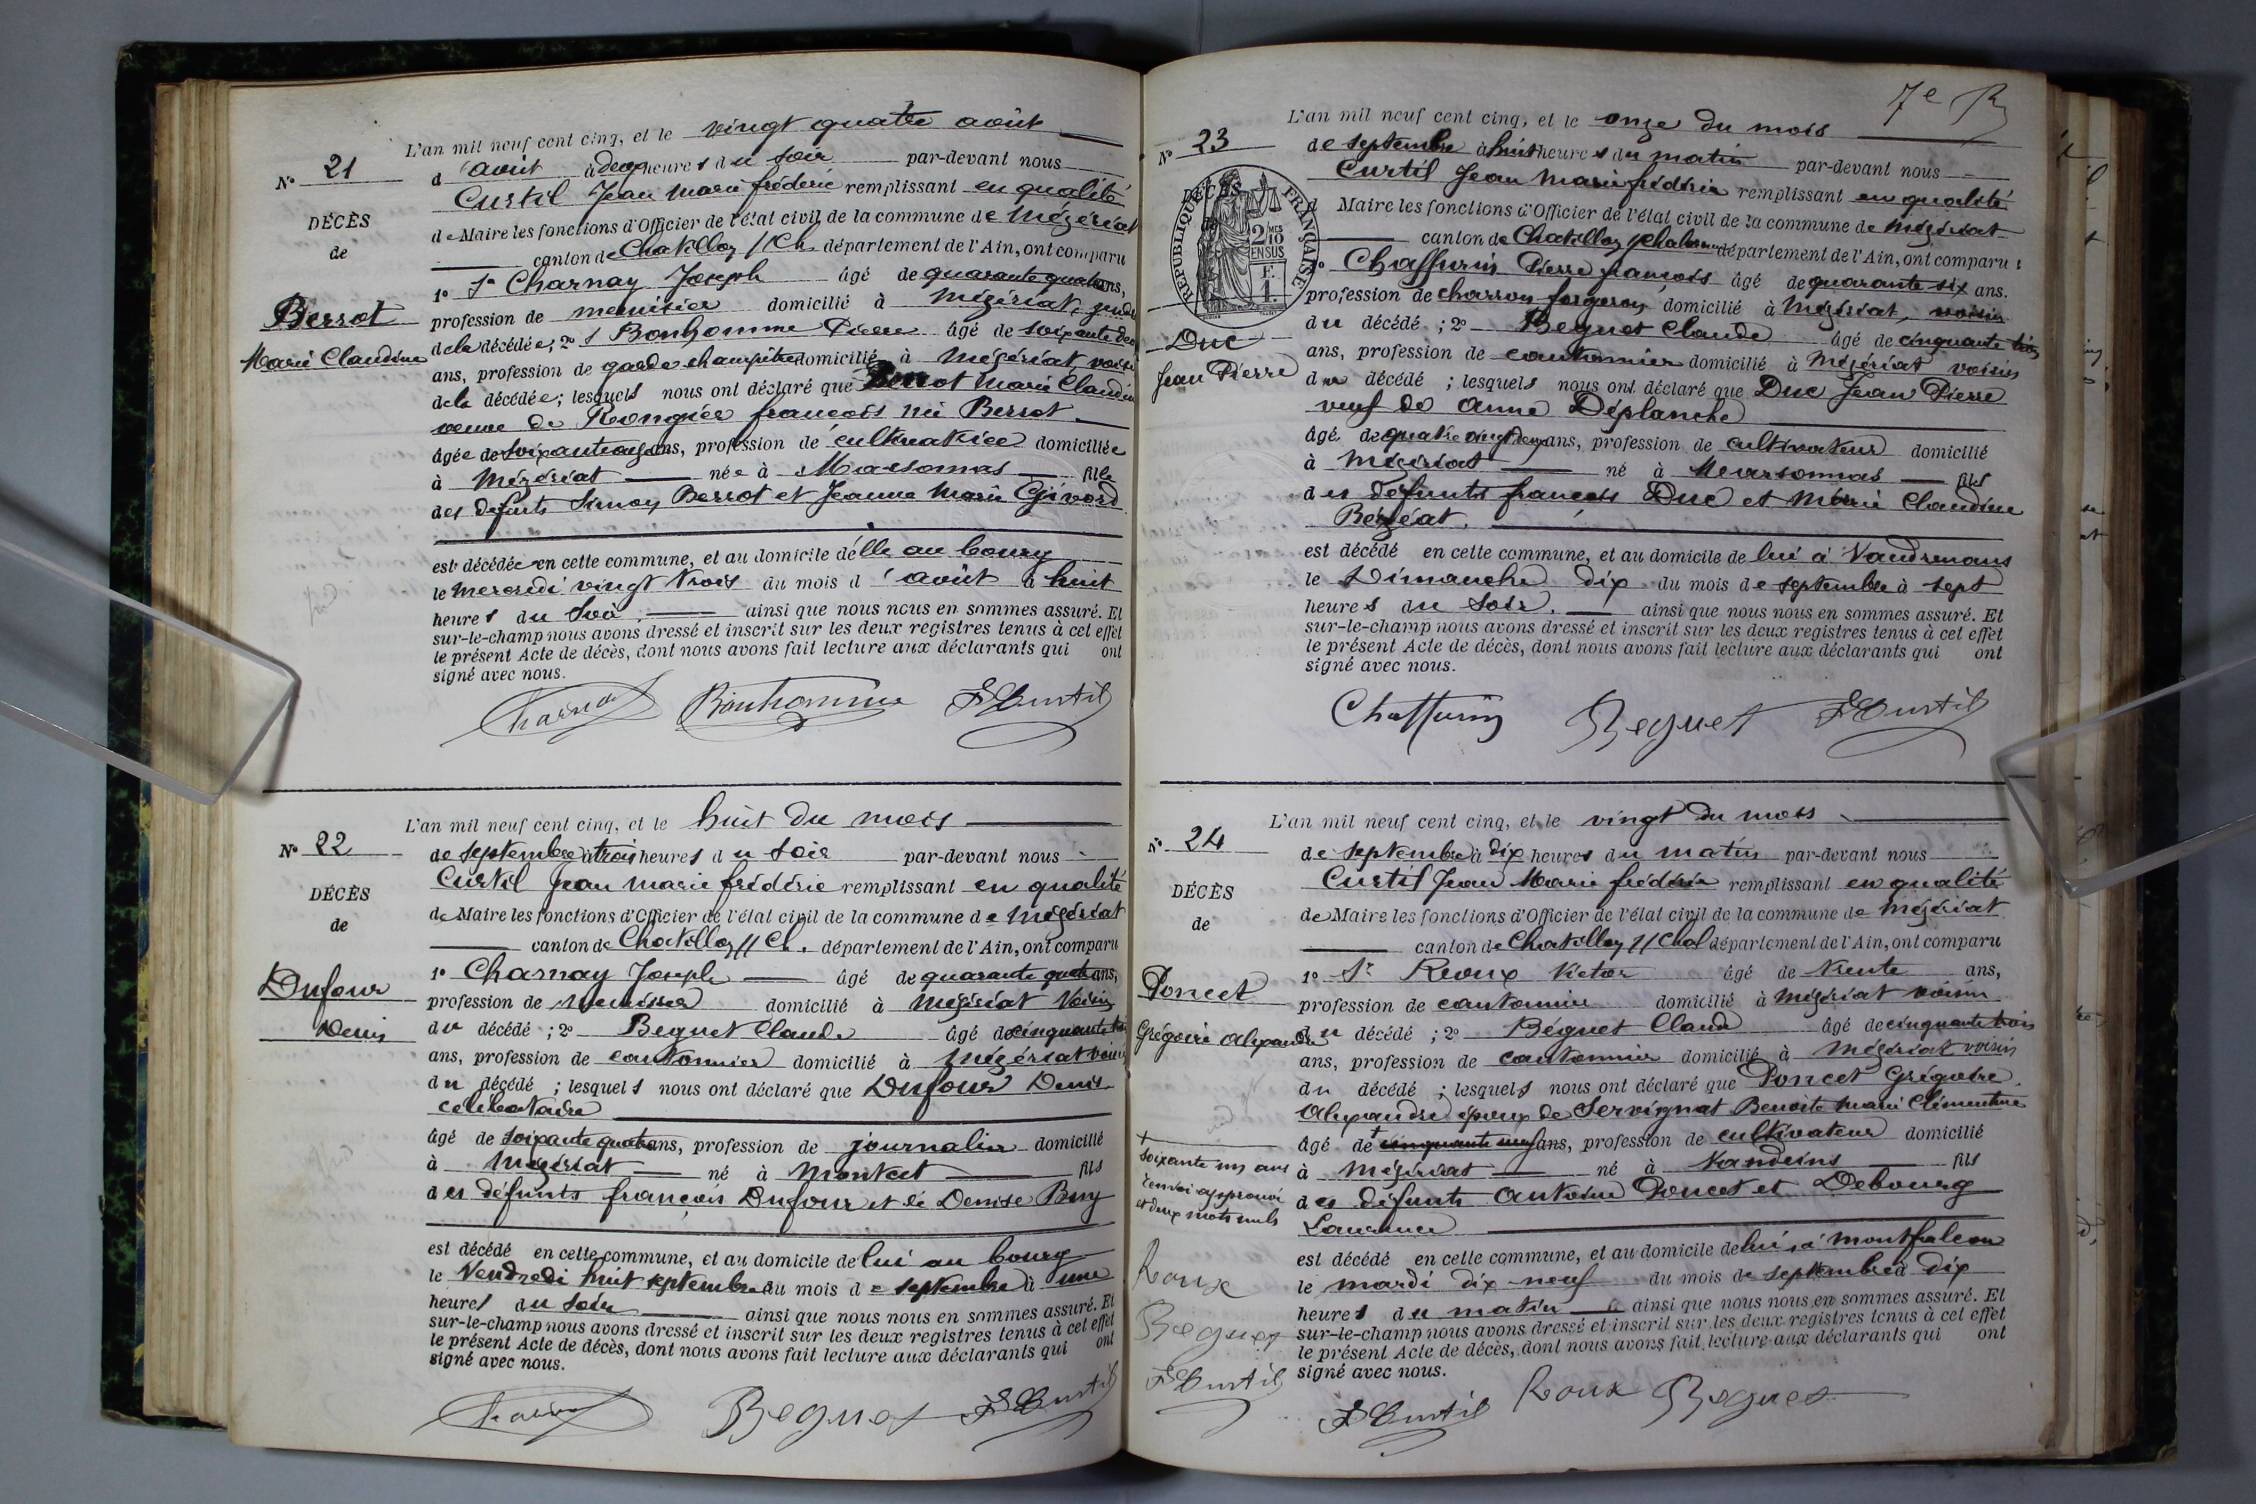 L'an mil neuf cent cinq, et le vingt quatre août
N° 21
d'août à deux heures du soir par-devant nous
Curtil Jean Marie frédéric remplissant en qualité
DÉCÈS
de Maire les fonctions d'Officier de l'état civil de la commune de Mézériat
de
canton de Chatillon s/ Ch. département de l'Ain, ont comparu
1° Sr Charnay Joseph âgé de quarante quatre ans,
Berrot
profession de menuisier domicilié à Mézériat, gendre
Marie Claudine
de la décédée; 2° S Bonhomme Pierre âgé de soixante deux
ans, profession de garde champêtre domicilié à Mézériat, voisin
de la décédée; lesquels nous ont déclaré que Berrot Marie Claudine
veuve de François née Berrot
âgée de soixante onze ans, profession de cultivatrice domiciliée
à Mézériat née à Marsonnas fille
des défunts Simon Berrot et Jeanne Marie Givord
est décédée en cette commune, et au domicile d'elle au bourg
le mercredi vingt trois du mois d'août à huit
heures du soir. ainsi que nous nous en sommes assuré. Et
sur-le-champ nous avons dressé et inscrit sur les deux registres tenus à cet effet
le présent Acte de décès, dont nous avons fait lecture aux déclarants qui ont
signé avec nous.
Charnay Bonhomme F Curtil
L'an mil neuf cent cinq, et le huit du mois
N° 22
de septembre à trois heures du soir par-devant nous
Curtil Jean Marie frédéric remplissant en qualité
DÉCÈS
de Maire les fonctions d'Officier de l'état civil de la commune de Mézériat
de
canton de Chatillon s/ Ch. département de l'Ain, ont comparu
1° Charnay Joseph âgé de quarante quatre ans,
Dufour
profession de menuisier domicilié à Mézériat voisin
Denis
du décédé; 2° Beguet Claude âgé de cinquante trois
ans, profession de cantonnier domicilié à Mézériat voisin
du décédé; lesquels nous ont déclaré que Dufour Denis
célibataire
âgé de soixante quatre ans, profession de journalier domicilié
à Mézériat né à Montcet fils
des défunts françois Dufour et de Denise Buy
est décédé en cette commune, et au domicile de lui au bourg
le Vendredi huit septembre du mois de septembre à une
heures du soir ainsi que nous nous en sommes assuré. Et
sur-le-champ nous avons dressé et inscrit sur les deux registres tenus à cet effet
le présent Acte de décès, dont nous avons fait lecture aux déclarants qui ont
signé avec nous.
Charnay Beguet F Curtil
7e
L'an mil neuf cent cinq, et le onze du mois
N° 23
de septembre à huit heures du matin par-devant nous
Curtil Jean Marie frédéric remplissant en qualité
DÉCÈS
RÉPUBLIQUE FRANÇAISE
2 MES 10 EN SUS
F. 1.
d Maire les fonctions d'Officier de l'état civil de la commune de Mézériat
canton de Chatillon s/ Chalaronne département de l'Ain, ont comparu :
1° Chaffurin Pierre françois âgé de quarante six ans.
profession de charron forgeron, domicilié à Mézériat, voisin
Duc
Jean Pierre
du décédé; 2° Beguet Claude âgé de cinquante trois
ans, profession de cantonnier domicilié à Mézériat voisin
du décédé; lesquels nous ont déclaré que Duc Jean Pierre
veuf de Anne Déplanche
âgé de quatre vingt deux ans, profession de cultivateur domicilié
à Mézériat né à Marsonnas fils
des défunts françois Duc et Marie Claudine
est décédé en cette commune, et au domicile de lui à Vaudrenans
le Dimanche dix du mois de septembre à sept
heures du soir. ainsi que nous nous en sommes assuré. Et
sur-le-champ nous avons dressé et inscrit sur les deux registres tenus à cet effet
le présent Acte de décès, dont nous avons fait lecture aux déclarants qui ont
signé avec nous.
Chaffurin Beguet F Curtil
L'an mil neuf cent cinq, et le vingt du mois
N° 24
de septembre à dix heures du matin par-devant nous
Curtil Jean Marie frédéric remplissant en qualité
DÉCÈS
de Maire les fonctions d'Officier de l'état civil de la commune de Mézériat
de
canton de Chatillon s/ Chal département de l'Ain, ont comparu
1° Sr Rioux Victor âgé de trente ans,
Poncet
profession de cantonnier domicilié à Mézériat voisin
Grégoire Alexandre
du décédé; 2° Béguet Claude âgé de cinquante trois
ans, profession de cantonnier domicilié à Mézériat voisin
du décédé; lesquels nous ont déclaré que Poncet Grégoire
Alexandre époux de Servignat Benoite Marie Clémentine
âgé de + cinquante neuf ans, profession de cultivateur domicilié
+
soixante un ans
renvoi approuvé
et deux mots nuls
à Mézériat né à Vandeins fils
des défunts Antoine Poncet et Debourg
Laurence
est décédé en cette commune, et au domicile de lui, à montfalcon
Roux
le mardi dix-neuf du mois de septembre à dix
heures du matin ainsi que nous nous en sommes assuré. Et
Beguet
sur-le-champ nous avons dressé et inscrit sur les deux registres tenus à cet effet
le présent Acte de décès, dont nous avons fait lecture aux déclarants qui ont
F Curtil
signé avec nous.
F Curtil Roux Beguet